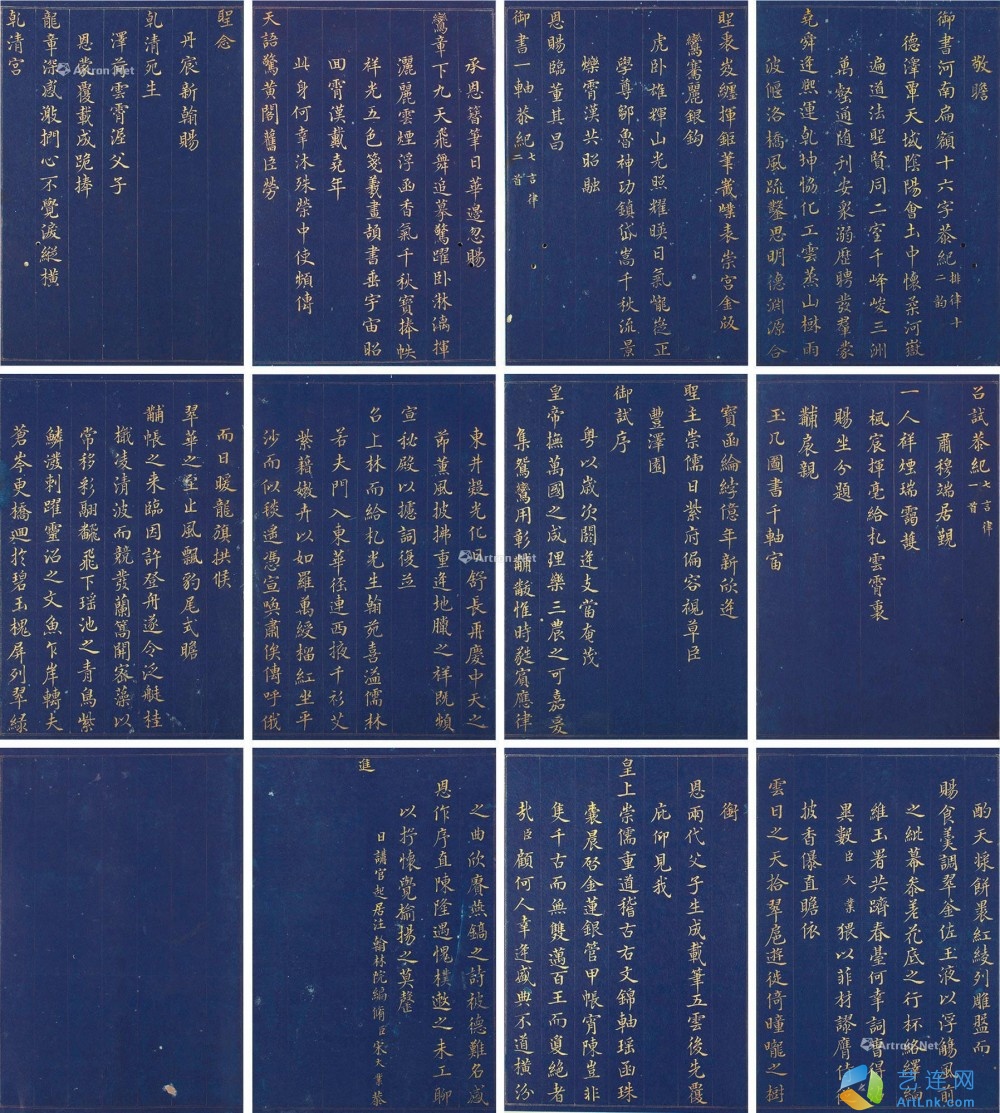 敬瞻
御書河南扁額十六字恭紀排律十二韵
德澤單天域陰陽會土中懷柔河嶽
遍道法聖賢同二室千峰峻三洲
萬壑通隨刊安衆溺歷聘發羣蒙
堯舜逢熙運乾坤協化工雲蒸山樹雨
波偃洛橋風疏鑿思明德淵源合
聖衷纏揮鉅筆嶻嵥表崇宮金版
鸞騫麗銀鈎
虎卧雄輝山光照耀暎日氣嵸正
學尊鄒魯神功鎮岱嵩千秋流景
爍霄漢共昭融
恩賜臨董其昌
御書一軸恭紀七言律二首
承恩簪筆日華邊忽賜
鸞章下九天飛舞追摹驚躍卧淋漓揮
灑麗雲煙浮函香氣千秋寶捧帙
祥光五色箋羲畫頡書垂宇宙昭
回霄漢戴堯年
此身何幸沐殊榮中使頻傳
天語驚黄閣舊臣勞
聖念
丹宸新翰賜
乾清死生
澤並雲霄渥父子
恩蒙覆載成跪捧
龍章深感激捫心不覺淚縱橫
乾清宮
召試恭紀七言律一首
肅穆端居覲
一人祥煙瑞靄護
楓宸揮毫給札雲霄裏
賜坐分題
黼扆親
玉几圖書千軸富
寶函綸綍億年新欣逢
聖主崇儒日紫府偏容視草臣
豐澤園
御試序
粤以歲次閼逢支當奄茂
皇帝撫萬國之咸理樂三農之可嘉爰
集鴛鸞用彰黼黻惟時蕤賓應律
東井起光化日舒長再慶中天之
節薰風披拂重逢地臘之祥既頒
宣秘殿以摅詞復並
召上林而給札光生翰苑喜溢儒林
若夫門入東華徑連西掖千衫艾
紫藉嫩卉以如羅萬綬榴紅坐平
沙而似毯遥憑宣喚肅俟傳呼俄
而日暖龍旗拱候
翠華之至止風飄豹尾式瞻
黼帳之来臨因許登舟遂令泛艇桂
檝凌清波而競發蘭篙開密藻以
常移彩翮翻飛下瑶池之青鳥紫
鱗潑剌躍靈沼之文魚乍岸轉夫
蒼岑更橋迴於碧玉槐屏列翠緑
酌天採餅裹紅綾列雕盤而
賜食美調翠釜佐玉液以浮觴風前
之紕幕參差花底之行杯絡繹緬
維玉署共躋春臺何幸詞曹得
異數臣大業猥以菲材謬膺侍
披香儤直瞻依
雲日之天拾翠扈遊徙倚曈曨之樹
銜
恩兩代父子生成載筆五雲後先覆
庇仰見我
皇上崇儒重道稽古右文錦軸瑶函珠
囊晨啓金蓮銀管甲帳宵陳豈非
隻千古而無雙邁百王而敻絶者
哉臣顧何人幸逢盛典不道横汾
之曲欣賡燕鎬之詩被德難名感
恩作序直陳隆遇愧樸遬之未工聊
以抒懷覺揄揚之莫罄
日講官起居注翰林院編脩臣宋大業恭
進
Artron.Net
Artron.Net
Artron.Net
艺连网
ArtLnk.com